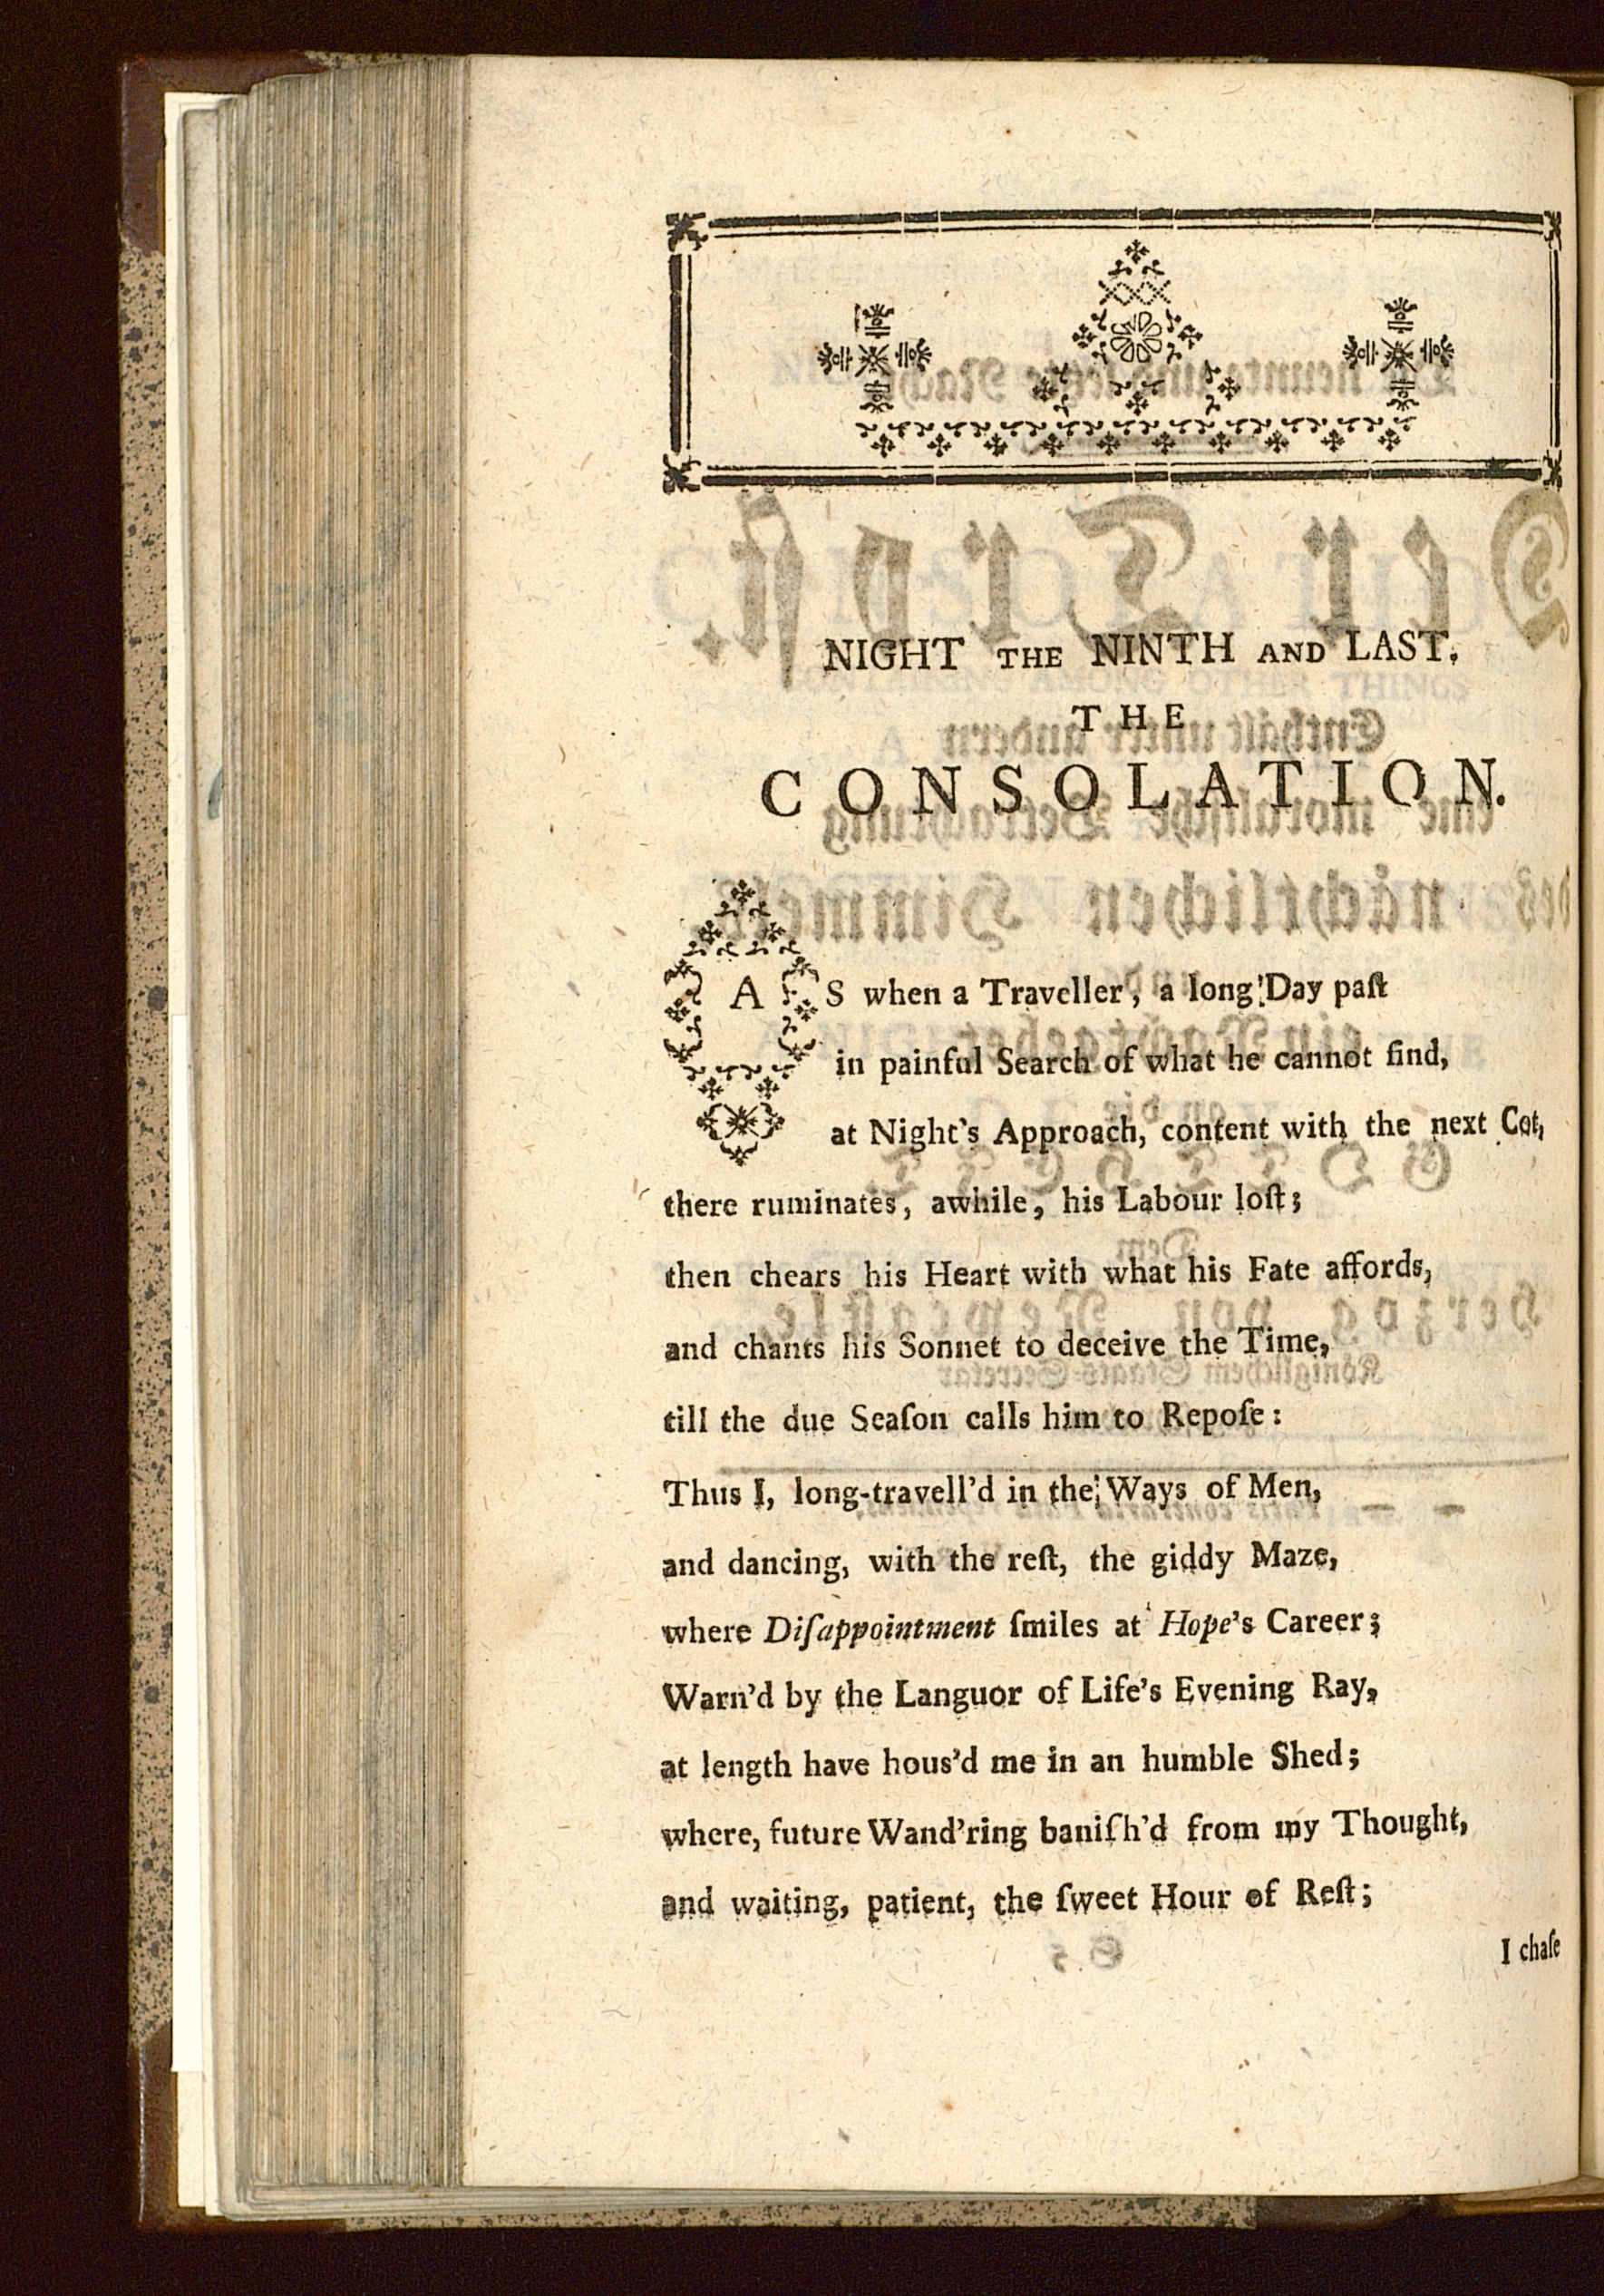 NIGHT THE NINTH AND LAST.
THE
CONSOLATION.
AS when a Traveller, a long Day paſt
in painful Search of what he cannot find,
at Night's Approach, content with the next Cot,
there ruminates, awhile, his Labour loſt;
then chears his Heart with what his Fate affords,
and chants his Sonnet to deceive the Time,
till the due Seaſon calls him to Repoſe:
Thus I, long-travell'd in the Ways of Men,
and dancing, with the reſt, the giddy Maze,
where Diſappointment ſmiles at Hope's Career;
Warn'd by the Languor of Life's Evening Ray,
at length have hous'd me in an humble Shed;
where, future Wand'ring baniſh'd from my Thought,
and waiting, patient, the ſweet Hour of Reſt;
I chaſe